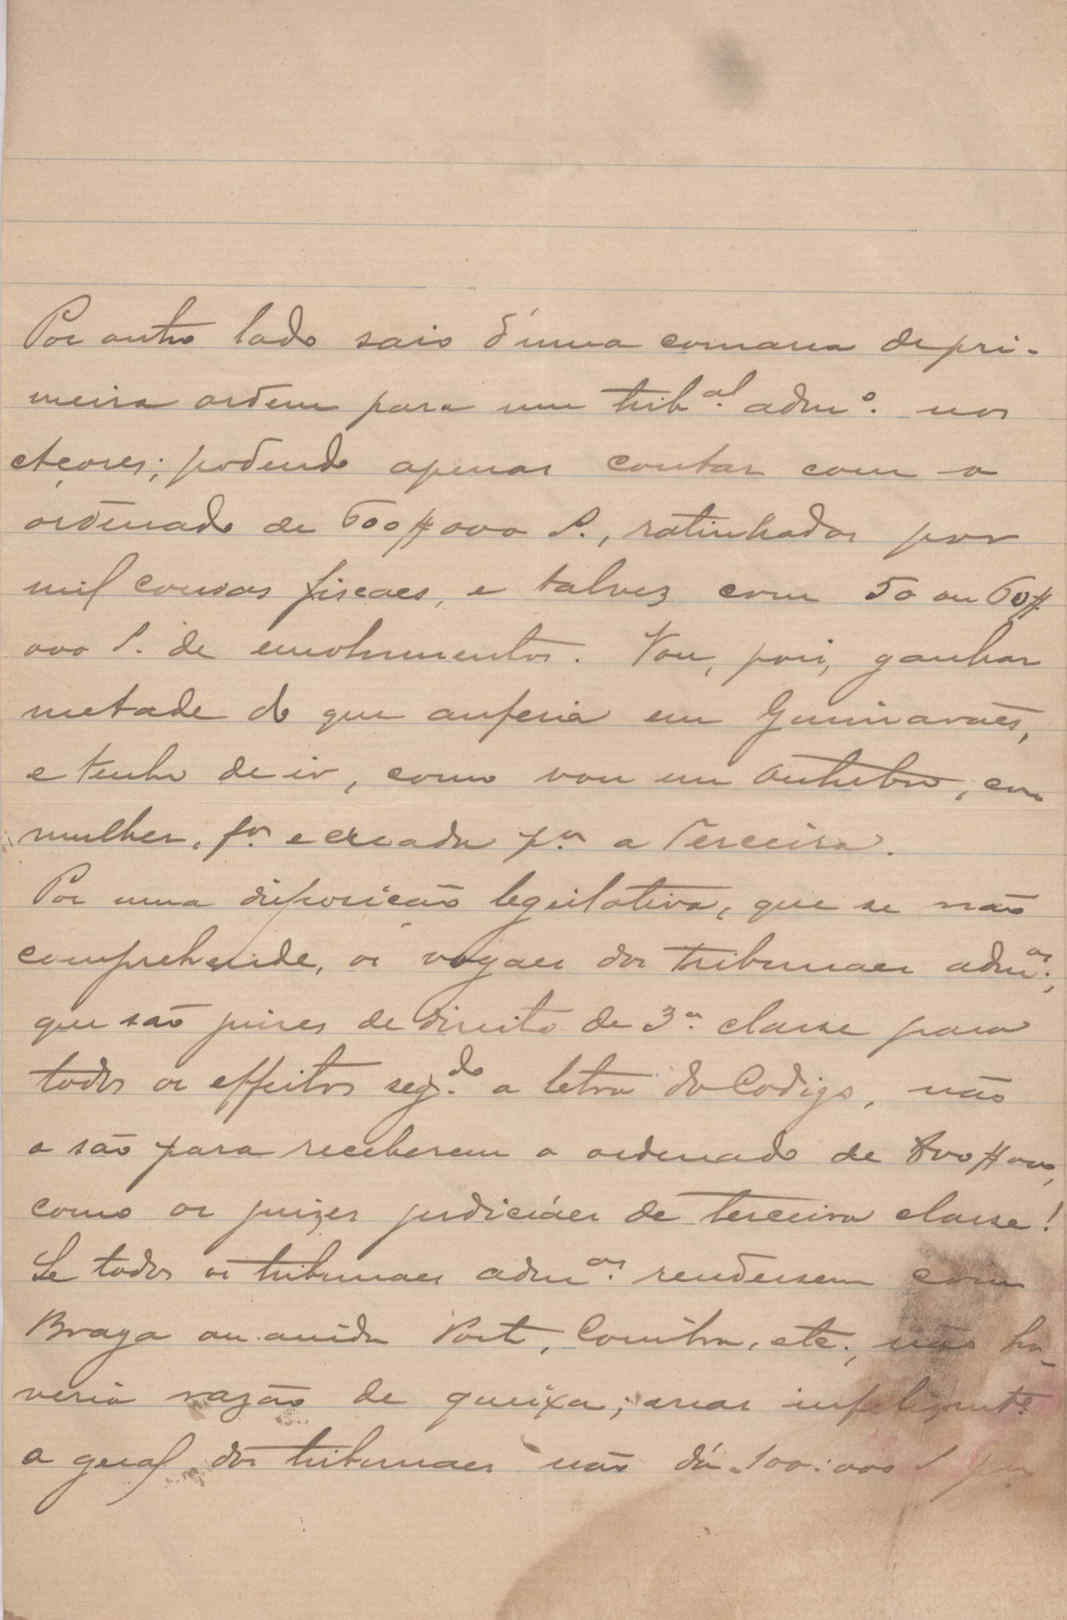 Por outro lado saio d'uma comarca de pri-
meira ordem para um trib.al adm.o nos
Açores; podendo apenas contar com o
ordenado de 600$000 r., ratinhados por
mil cousas fiscaes, e talvez com 50 ou 60$
000 r. de emolumentos. Vou, pois, ganhar
metade do que auferia em Guimarães,
e tenho de ir, como vou em Outubro, com
mulher, f.os e creada p.a a Terceira.
Por uma disposição legislativa, que se não
comprehende, os vogaes dos tribunaes adm.os,
que são juizes de direito de 3.a classe para
todos os effeitos seg.do a letra do Codigo, não
o são para receberem o ordenado de 800$000,
como os juizes judiciáes de terceira classe!
Se todos os tribunaes adm.os rendessem como
Braga ou ainda Port, Coimbra, etc., não ha-
veria razão de queixa; mas infelizmt.e
o geral dos tribunaes não dá 100:000 r